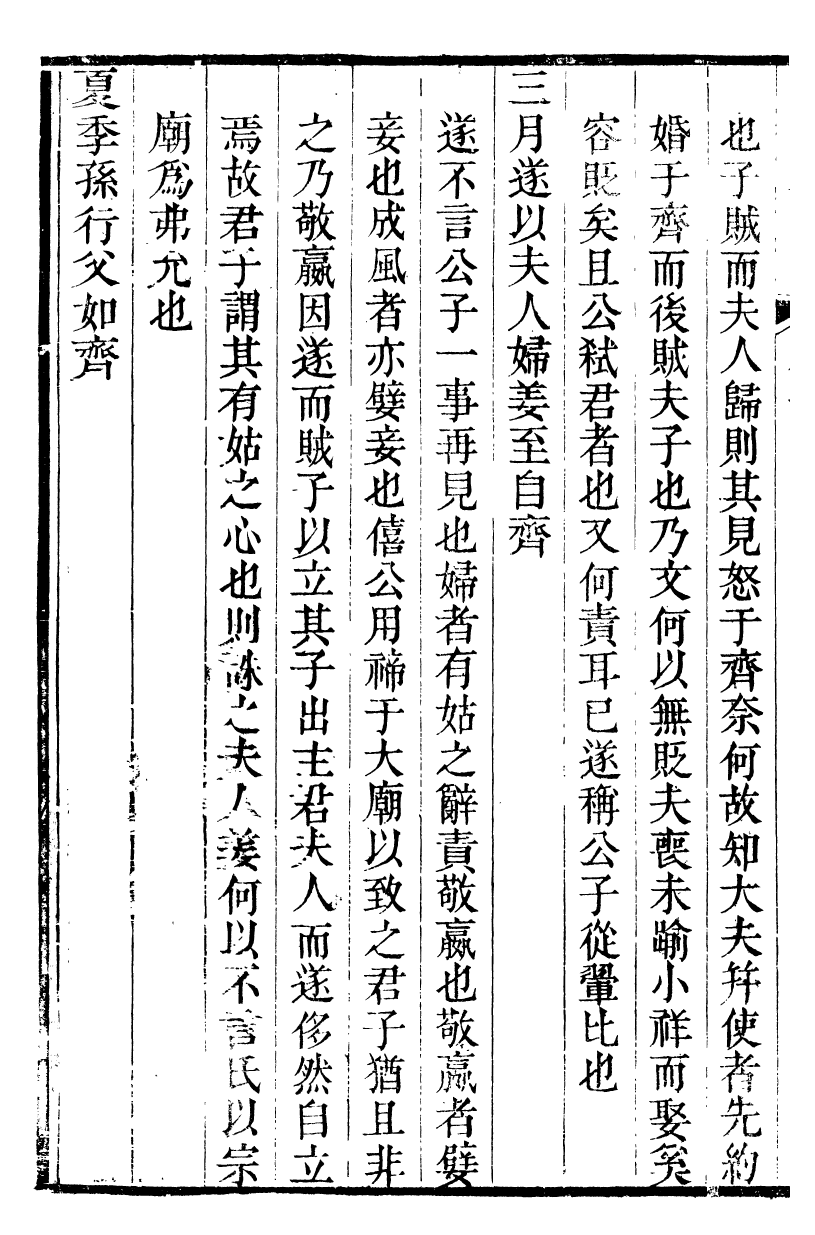 也子賊而夫人歸則其見怒于齊奈何故知大夫并使者先約
婚于齊而後賊夫子也乃文何以無貶夫喪未踰小祥而娶奚
容貶矣且公弒君者也又何責耳已遂稱公子從翬比也
三月遂以夫人婦姜至自齊
遂不言公子一事再見也婦者有姑之辭責敬嬴也敬嬴者嬖
妾也成風者亦嬖妾也僖公用禘于大廟以致之君子猶且非
之乃敬嬴因遂而賊子以立其子出主君夫人而遂侈然自立
焉故君子謂其有姑之心也則誅之夫人姜何以不言氏以宗
廟爲弗允也
夏季孫行父如齊